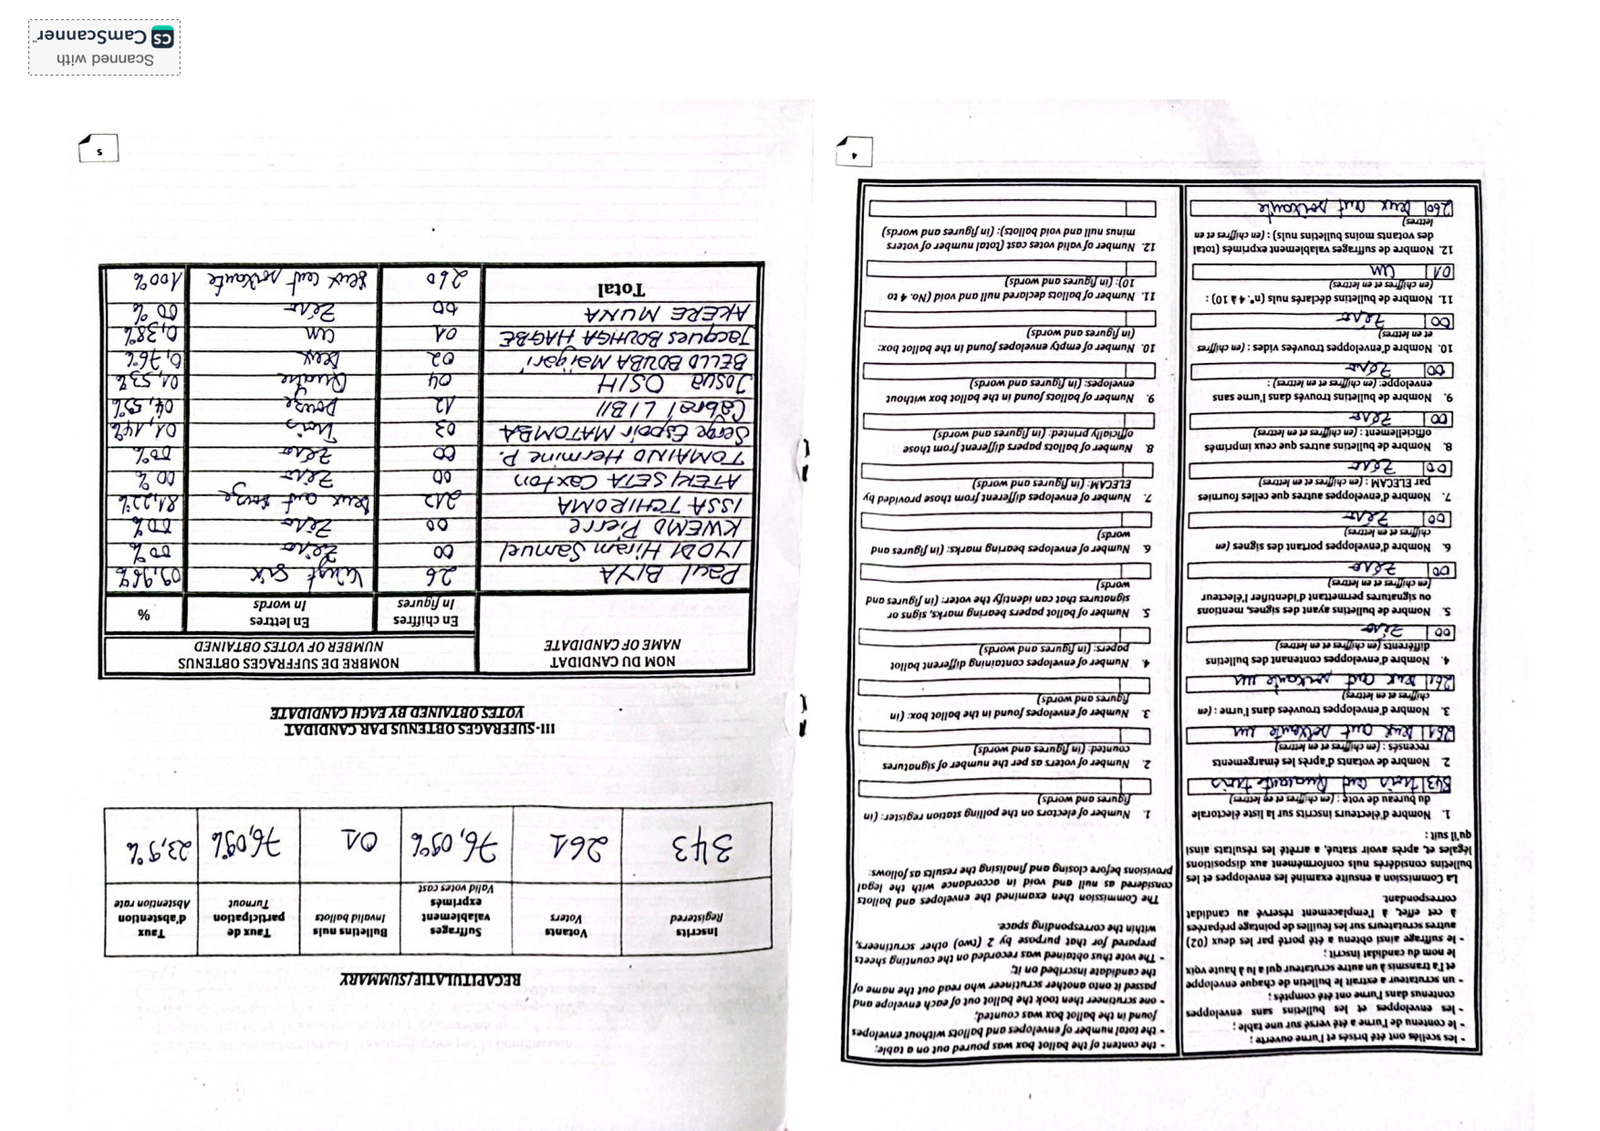 - les scellés ont été brisés et l'urne ouverte ;
- le contenu de l'urne a été versé sur une table ;
- les enveloppes et les bulletins sans enveloppes
contenus dans l'urne ont été comptés ;
- un scrutateur a extrait le bulletin de chaque enveloppe
et l'a transmis à un autre scrutateur qui a lu à haute voix
le nom du candidat inscrit ;
- le suffrage ainsi obtenu a été porté par les deux (02)
autres scrutateurs sur les feuilles de pointage préparées
à cet effet, à l'emplacement réservé au candidat
correspondant.
La Commission a ensuite examiné les enveloppes et les
bulletins considérés nuls conformément aux dispositions
légales et, après avoir statué, a arrêté les résultats ainsi
qu'il suit :
1. Nombre d'électeurs inscrits sur la liste électorale
du bureau de vote : (en chiffres et en lettres)
343 trois cent Quarante trois
2. Nombre de votants d'après les émargements
recensés : (en chiffres et en lettres)
261 deux cent soixante un
3. Nombre d'enveloppes trouvées dans l'urne : (en
chiffres et en lettres)
261 deux cent soixante un
4. Nombre d'enveloppes contenant des bulletins
différents (en chiffres et en lettres)
00 Zéro
5. Nombre de bulletins ayant des signes, mentions
ou signatures permettant d'identifier l'électeur
(en chiffres et en lettres)
00 Zéro
6. Nombre d'enveloppes portant des signes (en
chiffres et en lettres)
00 Zéro
7. Nombre d'enveloppes autres que celles fournies
par ELECAM : (en chiffres et en lettres)
00 Zéro
8. Nombre de bulletins autres que ceux imprimés
officiellement : (en chiffres et en lettres)
00 Zéro
9. Nombre de bulletins trouvés dans l'urne sans
enveloppe: (en chiffres et en lettres) :
00 Zéro
10. Nombre d'enveloppes trouvées vides : (en chiffres
et en lettres)
00 Zéro
11. Nombre de bulletins déclarés nuls (n°. 4 à 10) :
(en chiffres et en lettres)
01 Un
12. Nombre de suffrages valablement exprimés (total
des votants moins bulletins nuls) : (en chiffres et en
lettres)
260 deux cent soixante
- the content of the ballot box was poured out on a table;
- the total number of envelopes and ballots without envelopes
found in the ballot box was counted;
- one scrutineer then took the ballot out of each envelope and
passed it onto another scrutineer who read out the name of
the candidate inscribed on it;
- The vote thus obtained was recorded on the counting sheets
prepared for that purpose by 2 (two) other scrutineers,
within the corresponding space.
The Commission then examined the envelopes and ballots
considered as null and void in accordance with the legal
provisions before closing and finalising the results as follows:
1. Number of electors on the polling station register: (in
figures and words)
2. Number of voters as per the number of signatures
counted: (in figures and words)
3. Number of envelopes found in the ballot box: (in
figures and words)
4. Number of envelopes containing different ballot
papers: (in figures and words)
5. Number of ballot papers bearing marks, signs or
signatures that can identify the voter: (in figures and
words)
6. Number of envelopes bearing marks: (in figures and
words)
7. Number of envelopes different from those provided by
ELECAM: (in figures and words)
8. Number of ballots papers different from those
officially printed: (in figures and words)
9. Number of ballots found in the ballot box without
envelopes: (in figures and words)
10. Number of empty envelopes found in the ballot box:
(in figures and words)
11. Number of ballots declared null and void (No. 4 to
10): (in figures and words)
12. Number of valid votes cast (total number of voters
minus null and void ballots): (in figures and words)
4
RECAPITULATIF/SUMMARY
Inscrits Registered | Votants Voters | Suffrages valablement exprimés Valid votes cast | Bulletins nuls Invalid ballots | Taux de participation Turnout | Taux d'abstention Abstention rate
343 261 76,09% 01 76,09% 23,9%
III-SUFFRAGES OBTENUS PAR CANDIDAT
VOTES OBTAINED BY EACH CANDIDATE
NOM DU CANDIDAT
NAME OF CANDIDATE
NOMBRE DE SUFFRAGES OBTENUS
NUMBER OF VOTES OBTAINED
En chiffres
In figures
En lettres
In words
%
Paul BIYA 26 Vingt Six 09,96%
IYODI Hiram Samuel 00 Zéro 00%
KWEMO Pierre 00 Zéro 00%
ISSA TCHIROMA 212 Deux cent douze 81,22%
ATEKI SETA Caxton 00 Zéro 00%
TOMAINO Hermine P. 00 Zéro 00%
Serge Espoir MATOMBA 03 Trois 01,14%
Cabral LIBII 12 Douze 04,59%
Josua OSIH 04 Quatre 01,53%
BELLO BOUBA Maïgari 02 Deux 0,76%
Jacques BOUHGA HAGBE 01 Un 0,38%
AKERE MUNA 00 Zéro 00%
Total 260 Deux cent soixante 100%
5
Scanned with
CS CamScanner